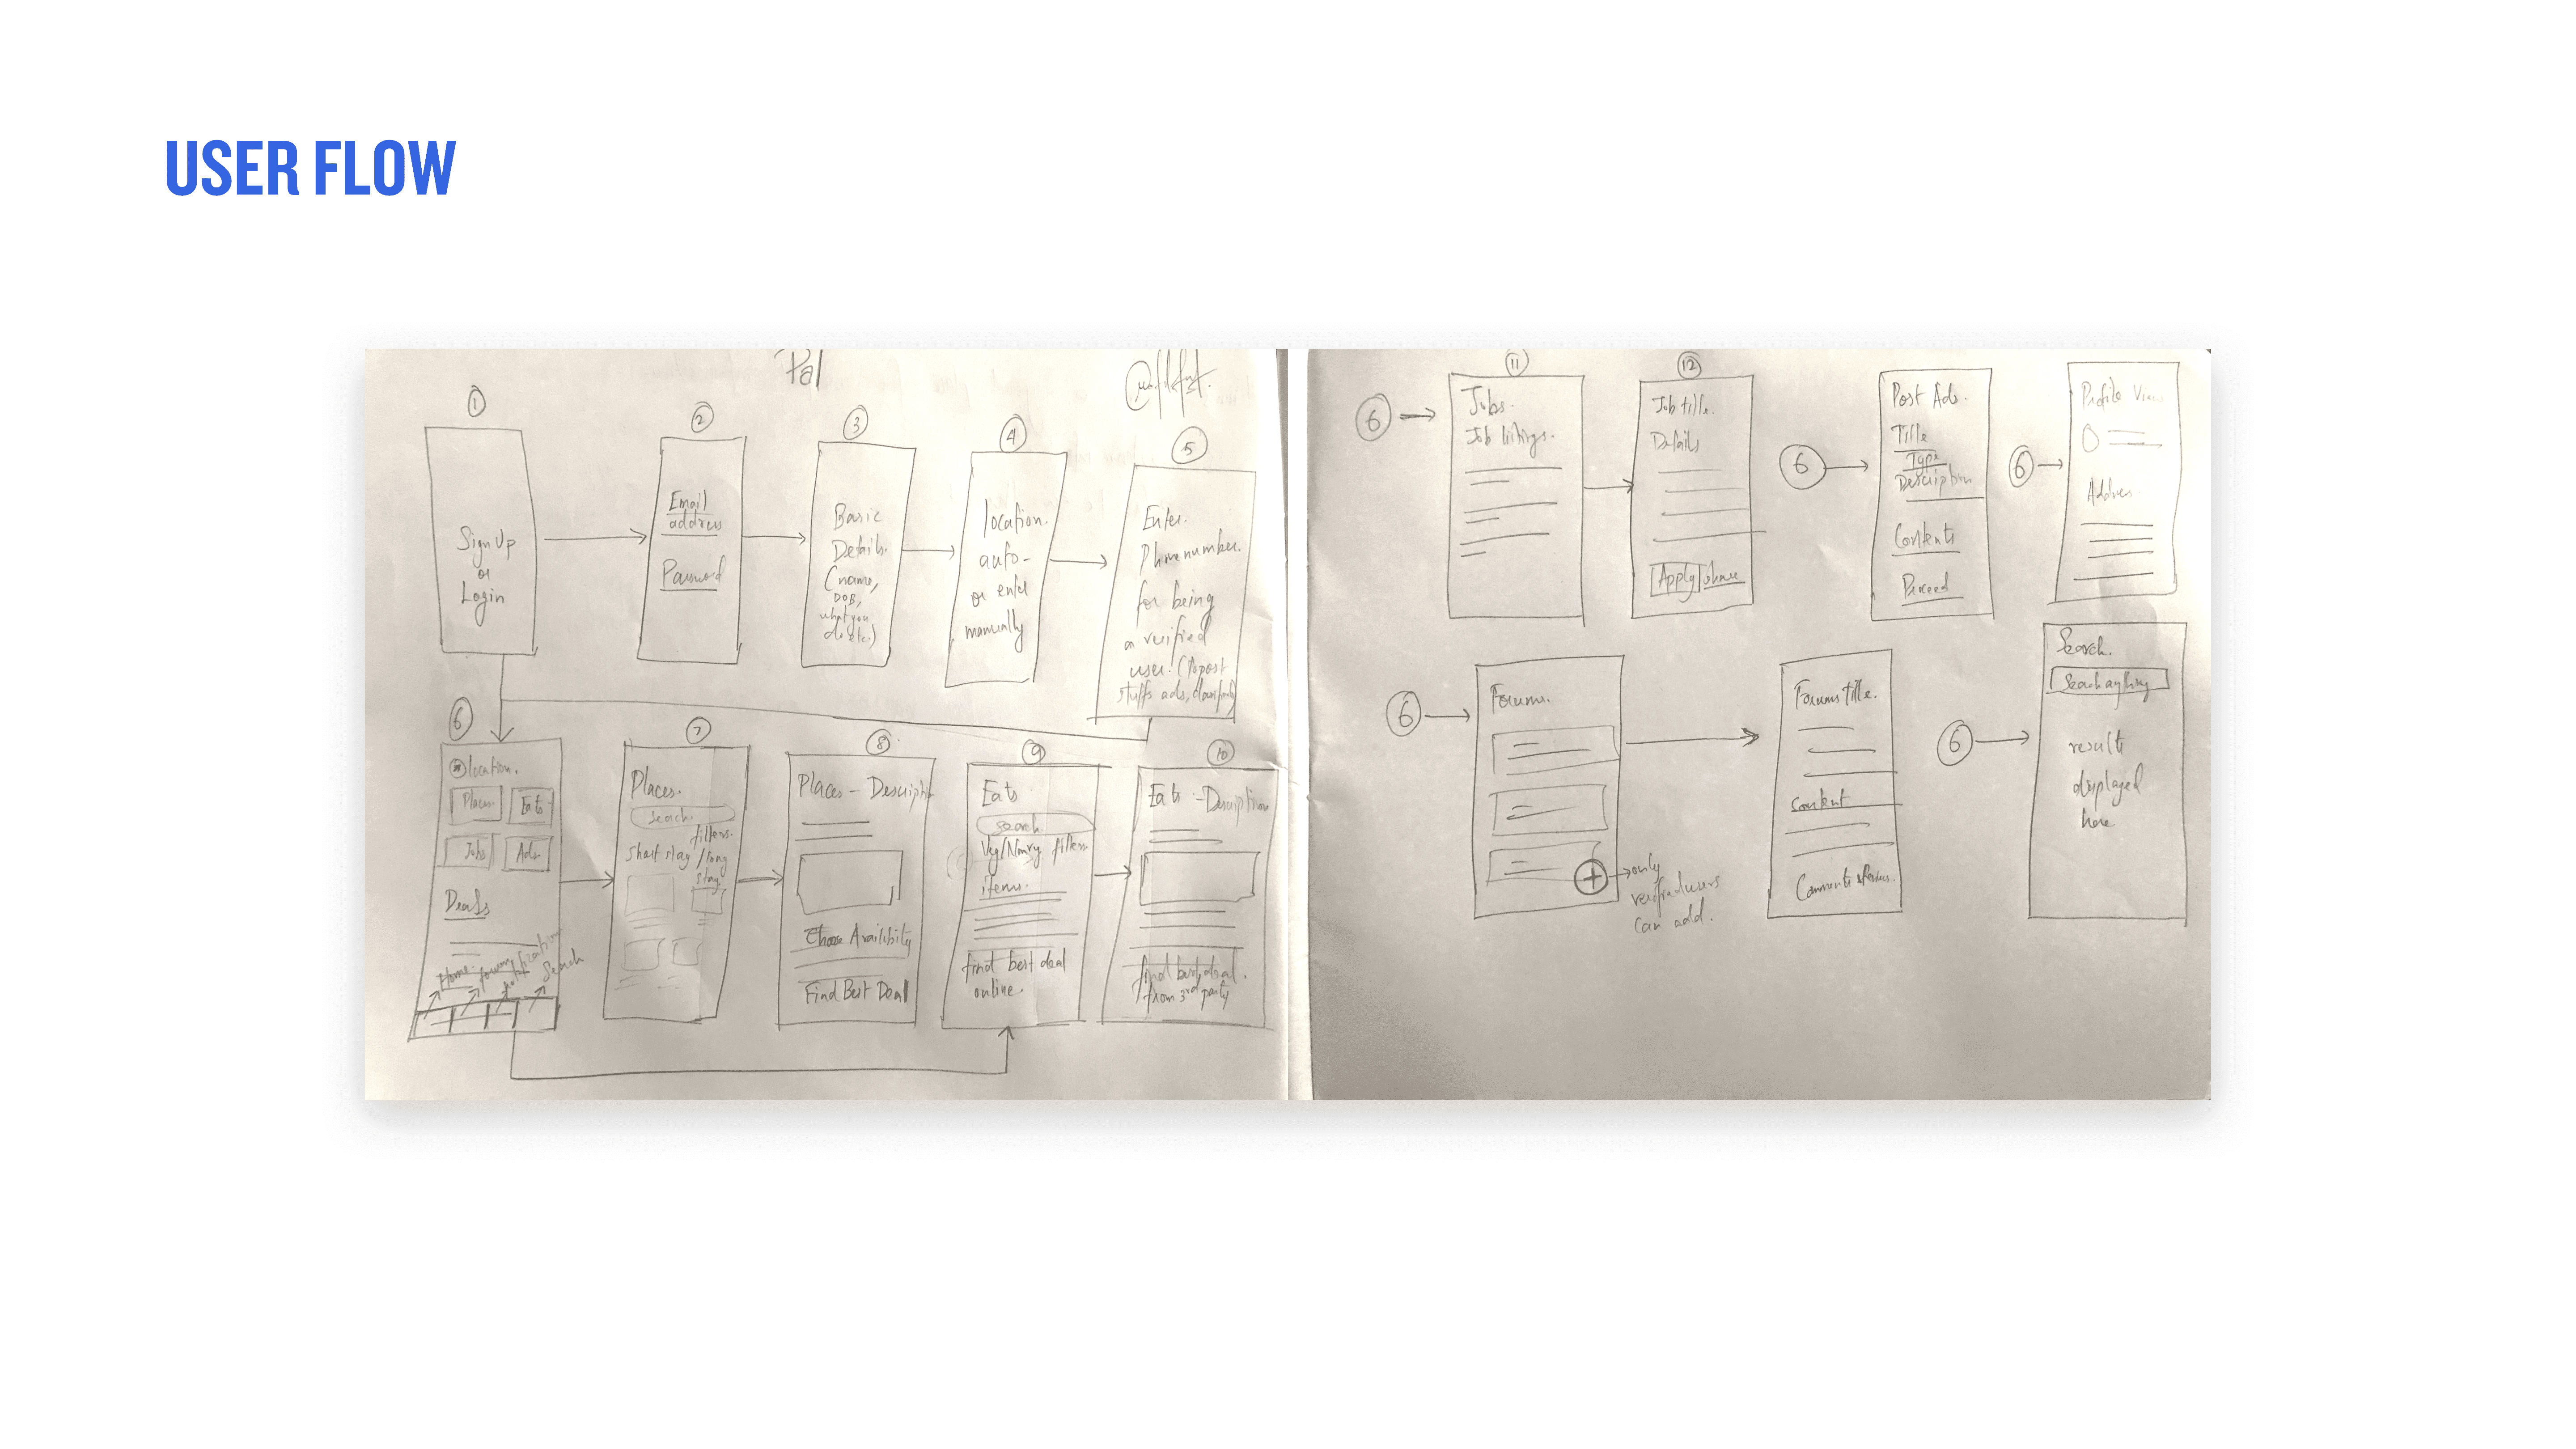 USER FLOW
Pal
1
Sign Up
or
Login
2
Email
address
Password
3
Basic
Details.
(name,
DOB,
what you
do etc.)
4
location.
auto-
or enter
manually
5
Enter.
Phone number.
for being
a verified
user. (to post
stuffs ads,
6
location.
Places
Eats
Jobs
Ads
Deals
Home.
forum
Search
7
Places.
Search.
filters.
short stay / long
stay
8
Places - Descripti
Choose Availibity
Find Best Deal
9
Eats
search
Veg/Nonveg filters
items.
find best deal
online.
10
Eats - Description
find best deal.
from 3rd party
6
11
Jobs.
Job listings.
12
Job title.
Details
Apply
share
6
Post Ads.
Title
Type
Description
Contents
Proceed
6
Profile View
Address
6
Forums.
only
verified users
can add.
Forums title.
content
Comments
6
Search.
Search anything
results
displayed
here